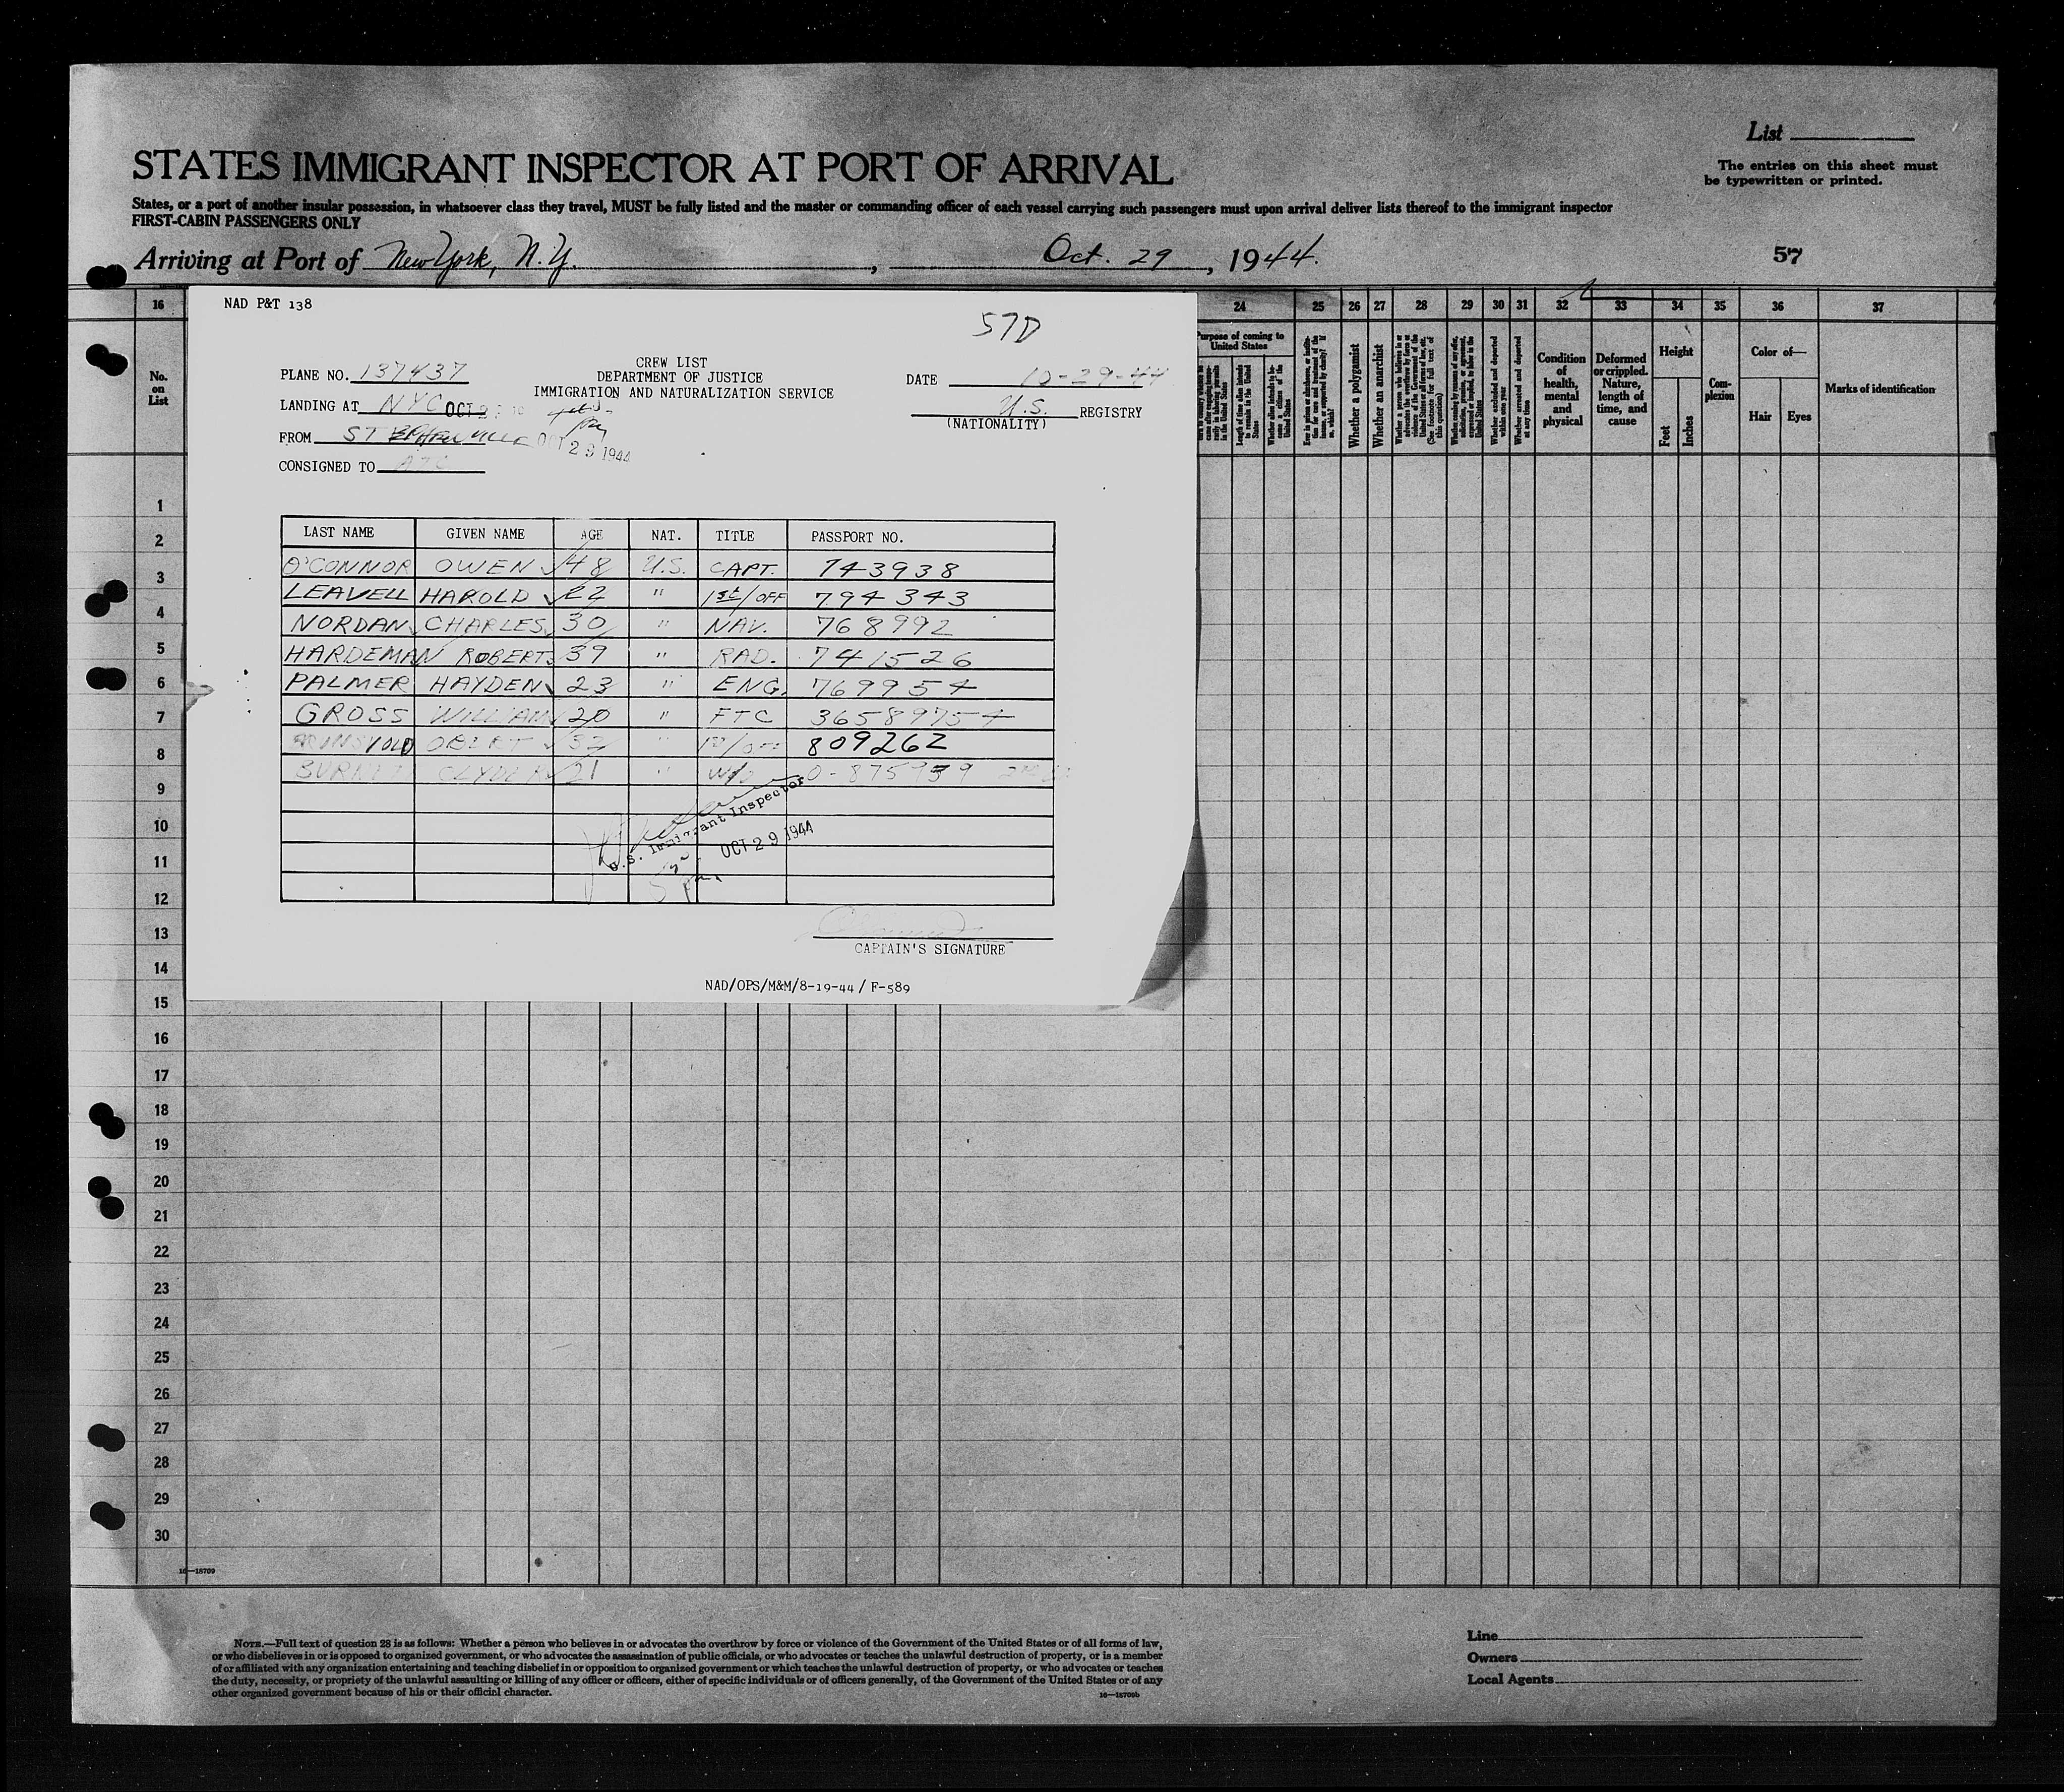 List
The entries on this sheet must
be typewritten or printed.
STATES IMMIGRANT INSPECTOR AT PORT OF ARRIVAL
States, or a port of another insular possession, in whatsoever class they travel, MUST be fully listed and the master or commanding officer of each vessel carrying such passengers must upon arrival deliver lists thereof to the immigrant inspector
FIRST-CABIN PASSENGERS ONLY
Arriving at Port of New York, N.Y. , Oct. 29, 1944. 57
16 24 25 26 27 28 29 30 31 32 33 34 35 36 37
No. on List
Purpose of coming to United States
Whether a polygamist
Whether an anarchist
Condition of health, mental and physical
Deformed or crippled. Nature, length of time, and cause
Height
Feet
Inches
Complexion
Color of—
Hair
Eyes
Marks of identification
NAD P&T 138
57D
CREW LIST
DEPARTMENT OF JUSTICE
IMMIGRATION AND NATURALIZATION SERVICE
PLANE NO. 137437
DATE 10-29-44
LANDING AT NYC
U.S. REGISTRY
(NATIONALITY)
FROM STEPHENVILLE OCT 29 1944
CONSIGNED TO ATC
LAST NAME GIVEN NAME AGE NAT. TITLE PASSPORT NO.
O'CONNOR OWEN 48 U.S. CAPT. 743938
LEAVELL HAROLD 22 " 1st/OFF 794343
NORDAN CHARLES 30 " NAV. 768992
HARDEMAN ROBERT 39 " RAD. 741526
PALMER HAYDEN 23 " ENG. 769954
GROSS WILLIAM 20 " FTC 36589754
OBERT 32 " 1st/OFF 809262
CLYDE 21 " W/O O-875939
U.S. Immigrant Inspector
OCT 29 1944
CAPTAIN'S SIGNATURE
NAD/OPS/M&M/8-19-44 / F-589
1
2
3
4
5
6
7
8
9
10
11
12
13
14
15
16
17
18
19
20
21
22
23
24
25
26
27
28
29
30
16—18709
NOTE.—Full text of question 28 is as follows: Whether a person who believes in or advocates the overthrow by force or violence of the Government of the United States or of all forms of law,
or who disbelieves in or is opposed to organized government, or who advocates the assassination of public officials, or who advocates or teaches the unlawful destruction of property, or is a member
of or affiliated with any organization entertaining and teaching disbelief in or opposition to organized government or which teaches the unlawful destruction of property, or who advocates or teaches
the duty, necessity, or propriety of the unlawful assaulting or killing of any officer or officers, either of specific individuals or of officers generally, of the Government of the United States or of any
other organized government because of his or their official character.
16—18709b
Line
Owners
Local Agents